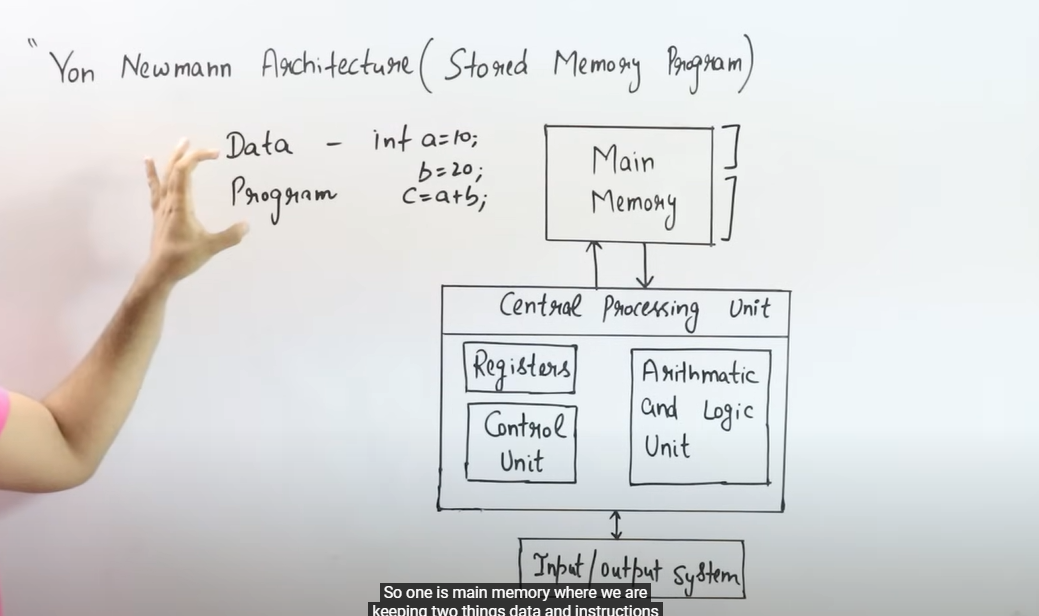 " Von Newmann Architecture ( Stored Memory Program)
Data - int a=10;
b=20;
Program c=a+b;
Main
Memory
Central Processing Unit
Registers
Control
Unit
Arithmatic
and Logic
Unit
Input/output System
So one is main memory where we are
keeping two things data and instructions